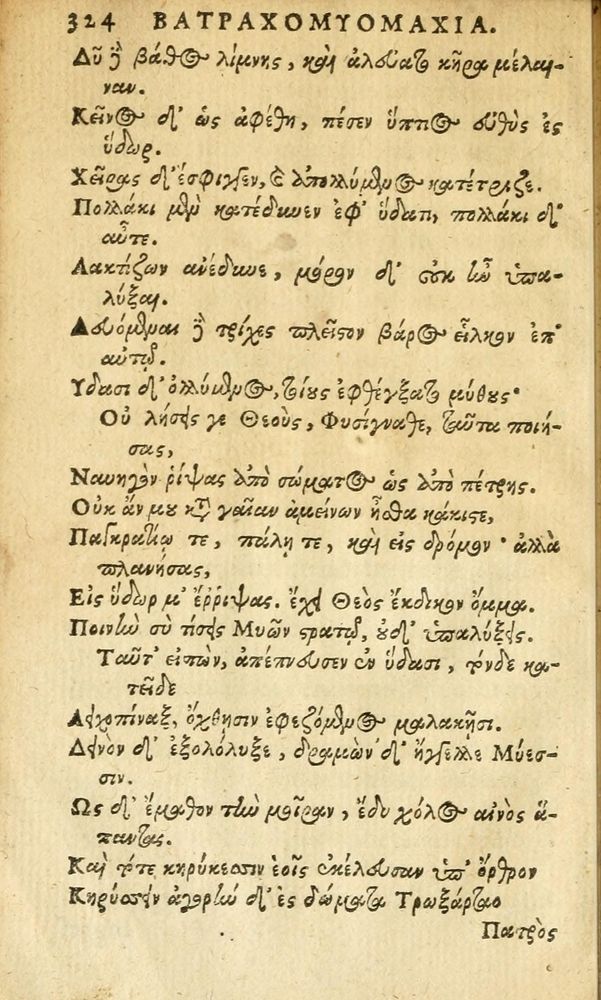 324 ΒΑΤΡΑΧΟΜΥΟΜΑΧΙΑ.
Δῦ ἢ βάθος λίμνης, καὶ ἀλεύατο κῆρα μέλαι-
ναν.
Κεῖνος δ' ὡς ἀφέθη, πέσεν ὕπτιος εὐθὺς ἐς
ὕδωρ.
Χεῖρας δ' ἔσφιγγεν, καὶ ἀπολλύμενος κατέτριζε.
Πολλάκι μὲν κατέδυνεν ἐφ' ὕδατι, πολλάκι δ'
αὖτε.
Λακτίζων ἀνέδυνε, μόρον δ' οὐκ ἦν ὑπα-
λύξαι.
Δευόμεναι δὲ τρίχες πλεῖστον βάρος εἷλκον ἐπ'
αὐτῷ.
Υδασι δ' ὀλλύμενος, τοίους ἐφθέγξατο μύθους·
Οὐ λήσεις γε Θεοὺς, Φυσίγναθε, ταῦτα ποιή-
σας,
Ναυηγὸν ῥίψας ἀπὸ σώματος ὡς ἀπὸ πέτρης.
Οὐκ ἄν μου κατὰ γαῖαν ἀμείνων ἦσθα κάκιστε,
Παγκρατίῳ τε, πάλῃ τε, καὶ εἰς δρόμον· ἀλλὰ
πλανήσας,
Εἰς ὕδωρ μ' ἔῤῥιψας. ἔχει Θεὸς ἔκδικον ὄμμα.
Ποινὴν σὺ τίσεις Μυῶν στρατῷ, οὐδ' ὑπαλύξεις.
Ταῦτ' εἰπὼν, ἀπέπνευσεν ἐν ὕδασι, τόνδε κα-
τεῖδε
Λειχοπίναξ, ὄχθησιν ἐφεζόμενος μαλακῇσι.
Δεινὸν δ' ἐξολόλυξε, δραμὼν δ' ἤγγελλε Μύεσ-
σιν.
Ως δ' ἔμαθον τὴν μοῖραν, ἔδυ χόλος αἰνὸς ἅ-
παντας.
Καὶ τότε κηρύκεσσιν ἑοῖς ἐκέλευσαν ὑπ' ὄρθρον
Κηρύσσειν ἀγορὴν δ' ἐς δώματα Τρωξάρταο
Πατρὸς